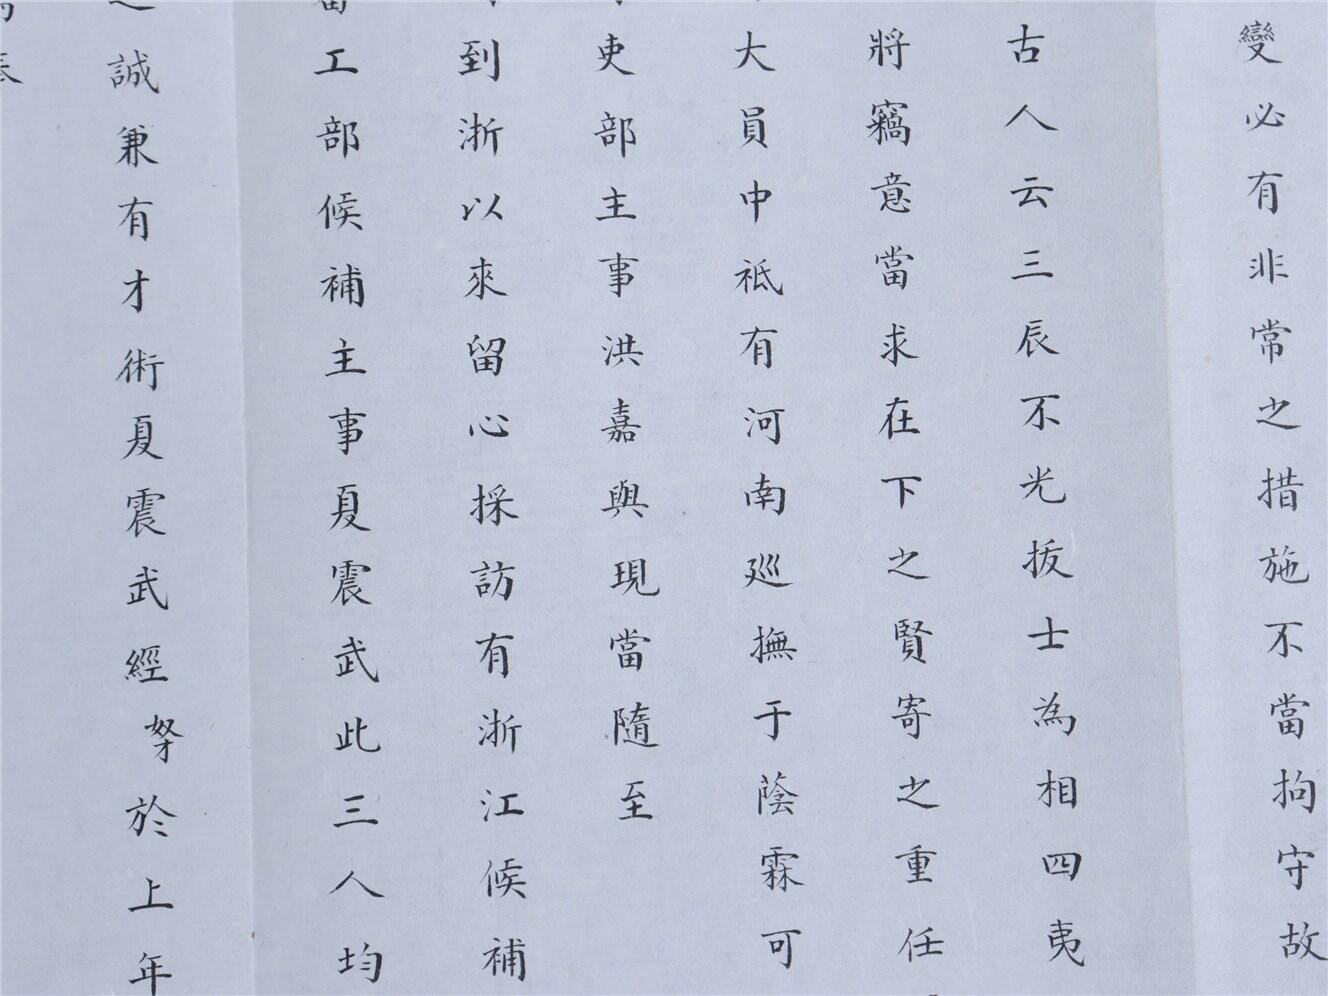 變必有非常之措施不當拘守故
古人云三辰不光拔士為相四夷
將竊意當求在下之賢寄之重任
大員中祗有河南巡撫于蔭霖可
吏部主事洪嘉與現當隨至
到浙以來留心採訪有浙江候補
工部候補主事夏震武此三人均
誠兼有才術夏震武經孥於上年